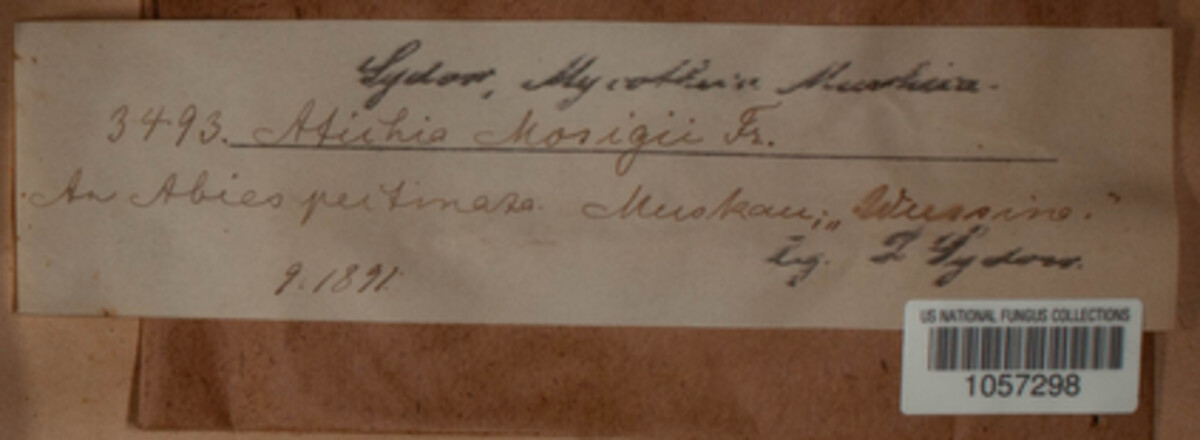 Sydow, Mycotheca Marchica.
3493. Atichia Mosigii Fr.
An Abies pectinata. Muskau; „Wussina."
leg. P Sydow.
9.1891.
US NATIONAL FUNGUS COLLECTIONS
1057298